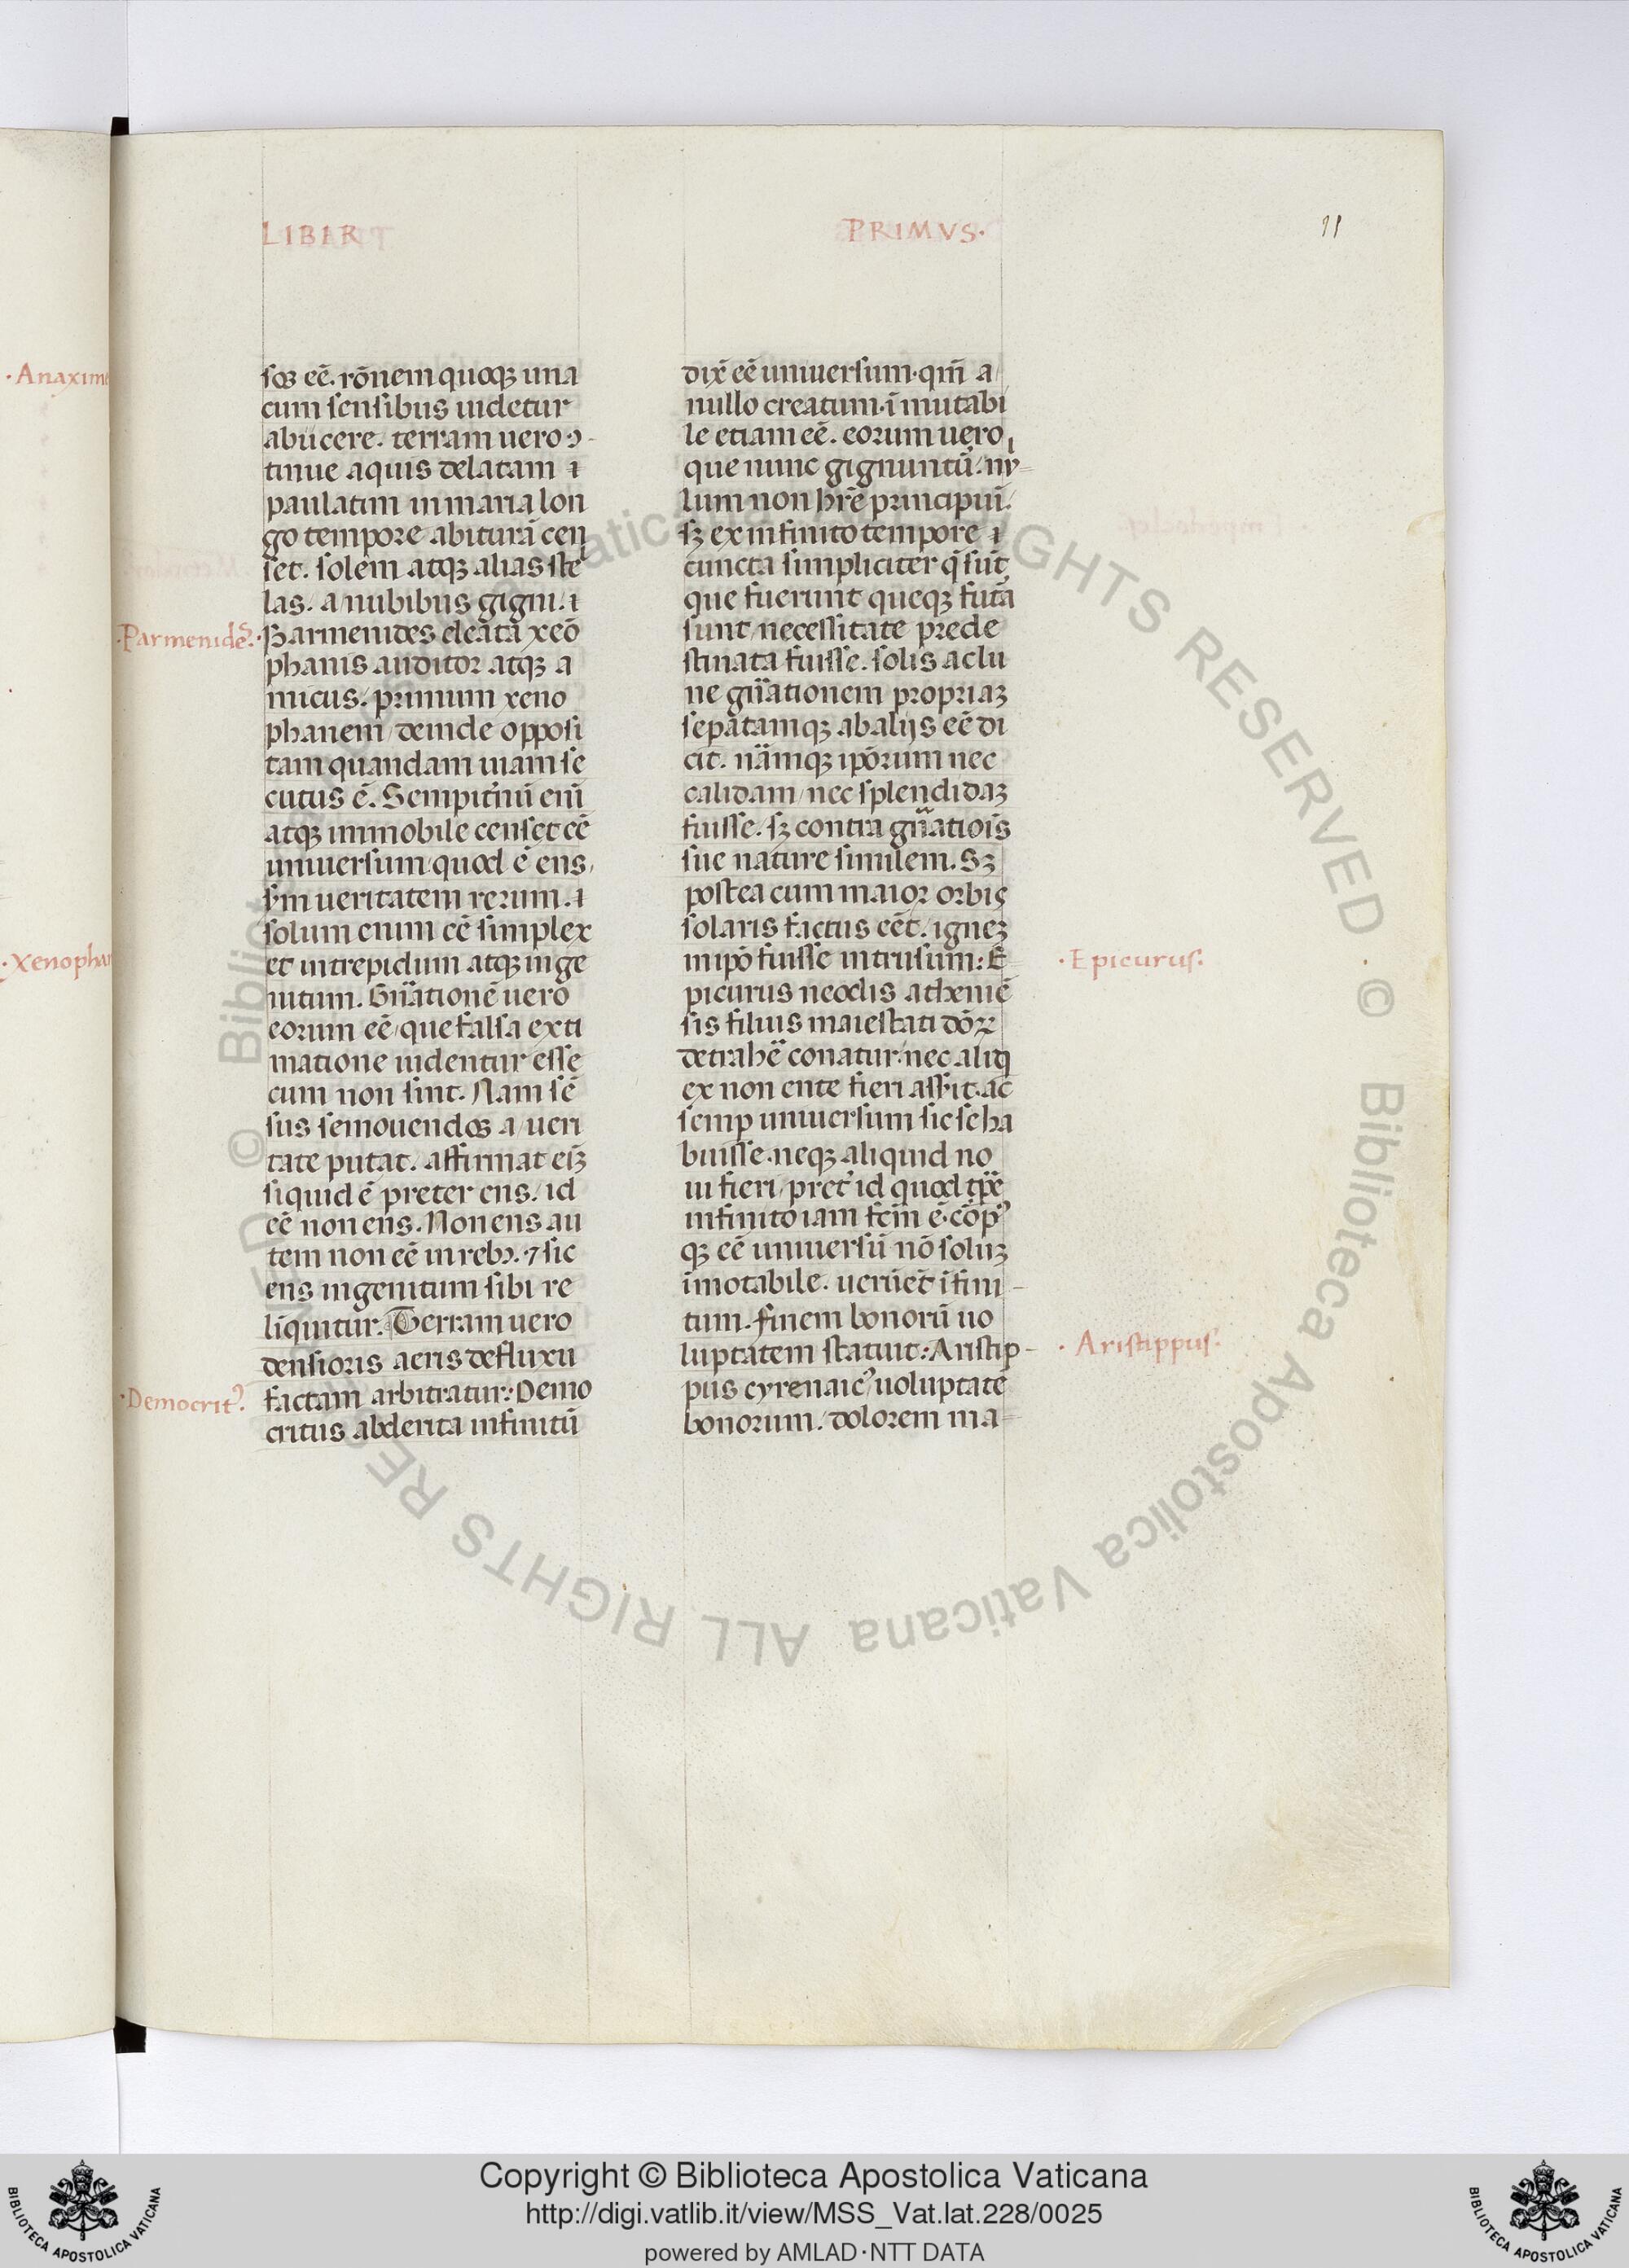 LIBER PRIMVS.
11
·Anaxim
·Xenopha
sos eē. rōnem quoqꝫ una
cum sensibus uidetur
abiicere. terram uero ↄ-
tinue aquis delatam ⁊
paulatim in maria lon
go tempore abiturā cen
set. solem atqꝫ alias stel
las. a nubibus gigni. ⁊
·Parmenides·
Parmenides eleata xeō
phanis auditor atqꝫ a
micus. primum xeno
phanem deinde opposi
tam quandam uiam se
cutus ē. Sempit̄nū enī
atqꝫ immobile censet eē
uniuersum quod ē ens,
sm̄ ueritatem rerum. ⁊
solum enim eē simplex
et intrepidum atqꝫ inge
nitum. Gn̄ationē uero
eorum eē que falsa exti
matione uidentur esse
cum non sint. Nam sē
sus semouendos a ueri
tate putat. affirmat eīꝫ
siquid ē preter ens. id
eē non ens. Non ens au
tem non eē in rebꝫ. ⁊ sic
ens ingenitum sibi re
linquitur. Terram uero
densioris aeris defluxu
·Democritꝰ.
factam arbitratur: Demo
critus abderita infinitū
dix̄ eē uniuersum. qm̄ a
nullo creatum. īmutabi
le etiam eē. eorum uero
que nunc gignuntū. nul
lum non hr̄e principiū.
sꝫ ex infinito tempore ⁊
cuncta simpliciter q̄ sūt
que fuerunt queqꝫ futā
sunt necessitate prede
stinata fuisse. solis ac lu
ne gn̄ationem propriaꝫ
sepatamqꝫ ab alijs eē di
cit. nāmqꝫ ipōrum nec
calidam nec splendidaꝫ
fuisse. sꝫ contra gn̄atiois
sue nature similem. Sꝫ
postea cum maior orbis
solaris factus eēt. igneꝫ
in ipō fuisse intrusum: E
·Epicurus:
picurus neoclis atheniē
sis filius maiestati dōꝝ
detrahē conatur. nec aliqͥ
ex non ente fieri assit. ac
semp uniuersum sic se ha
buisse. neqꝫ aliquid no
ui fieri pret̄ id quod tp̄e
infinito iam fcm̄ ē. cōpꝰ
qꝫ eē uniuersū nō soluꝫ
īmotabile. uerūet̄ īfini-
tum. finem bonorū uo
luptatem statuit: Aristip-
·Aristippus:
pus cyrenaicꝰ uoluptatē
bonorum. dolorem ma-
Copyright © Biblioteca Apostolica Vaticana
http://digi.vatlib.it/view/MSS_Vat.lat.228/0025
powered by AMLAD·NTT DATA
BIBLIOTECA APOSTOLICA VATICANA
BIBLIOTECA APOSTOLICA VATICANA
© Biblioteca Apostolica Vaticana ALL RIGHTS RESERVED · © Biblioteca Apostolica Vaticana ALL RIGHTS RESERVED